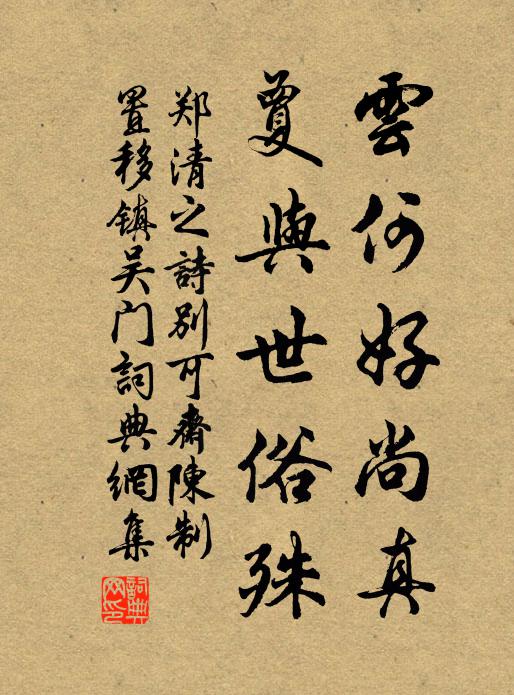 雲何好尚真
夐與世俗殊
郑清之詩别可齋陳制
置移镇吴门詞典網集
詞典网印